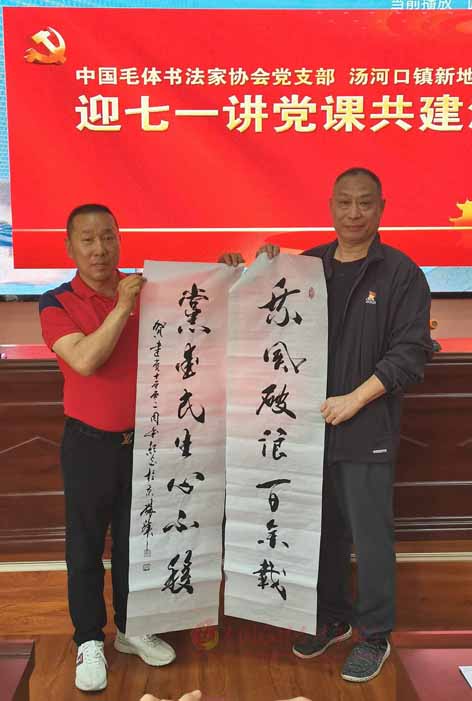 当前播放
中国毛体书法家协会党支部 汤河口镇新地
迎七一讲党课共建
乘风破浪百余载
黨爱民生心不移
贺建党
周年